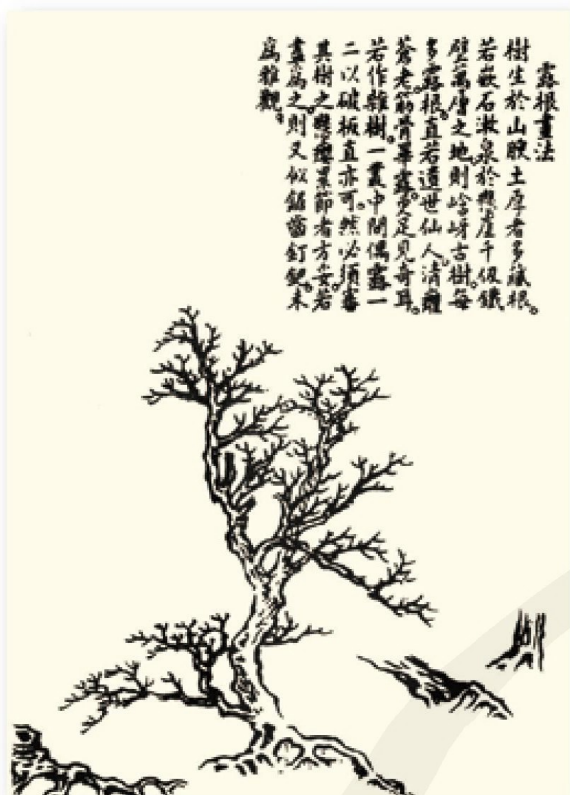 露根畫法
樹生於山腴土厚者多藏根。
若嵌石漱泉於懸崖千伋鐵
壁萬層之地則崚岈古樹。每
多露根。直若遺世仙人清癯
蒼老。筋骨畢露。更足見奇耳。
若作雜樹。一叢中間偶露一
二以破板直亦可。然必須審
其樹之癭瘤累節者方妥。若
盡為之則又似鋸齒釘鈀。未
為雅觀。